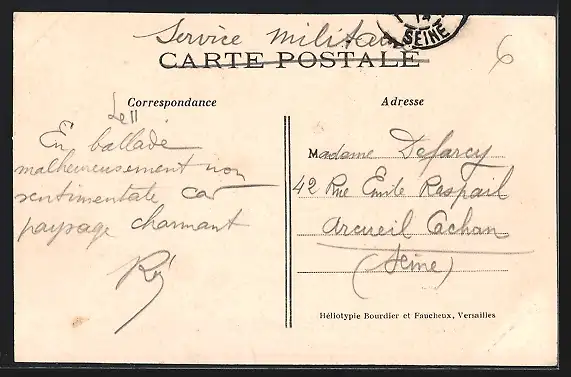 Service militaire
14
SEINE
CARTE POSTALE
6
Correspondance
Adresse
Le 11
En ballade
malheureusement non
sentimentale, car
paysage charmant
Madame Defarcy
42 Rue Emile Raspail
Arcueil Cachan
(Seine)
Héliotypie Bourdier et Faucheux, Versailles